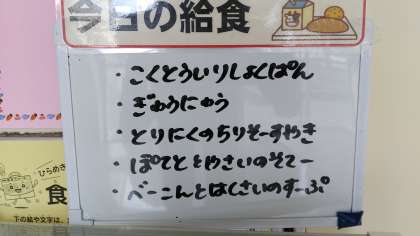 今日の給食
・こくとういりしょくぱん
・ぎゅうにゅう
・とりにくのちりそーすやき
・ぽてととやさいのそてー
・べーこんとはくさいのすーぷ
ひらめき
食
下の絵や文字は、